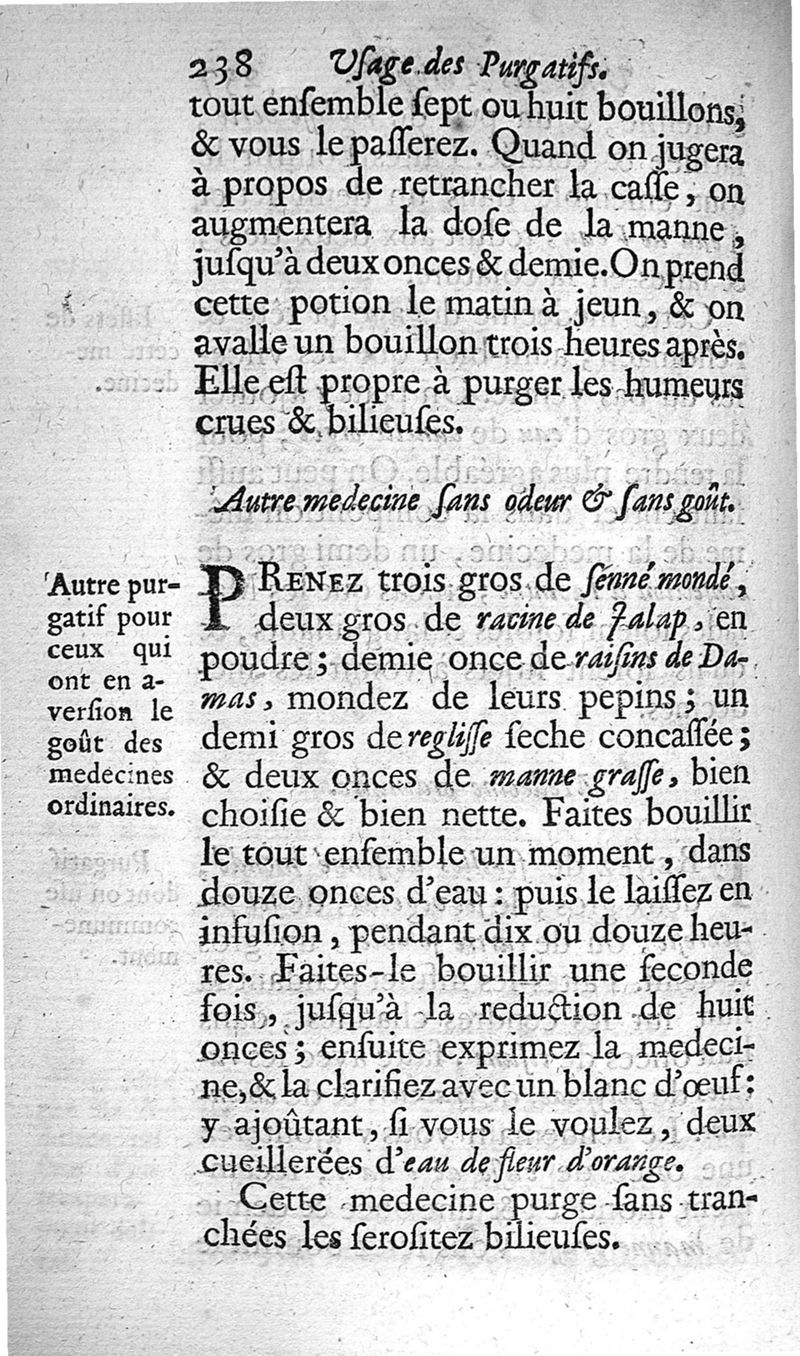 238 Vſage des Purgatifs.
tout enſemble ſept ou huit bouillons,
& vous le paſſerez. Quand on jugera
à propos de retrancher la caſſe, on
augmentera la doſe de la manne,
juſqu'à deux onces & demie. On prend
cette potion le matin à jeun, & on
avalle un bouillon trois heures après.
Elle eſt propre à purger les humeurs
crues & bilieuſes.
Autre medecine ſans odeur & ſans goût.
Autre pur-
gatif pour
ceux qui
ont en a-
verſion le
goût des
medecines
ordinaires.
PRENEZ trois gros de ſénné mondé,
deux gros de racine de Jalap, en
poudre; demie once de raiſins de Da-
mas, mondez de leurs pepins; un
demi gros de regliſſe ſeche concaſſée;
& deux onces de manne graſſe, bien
choiſie & bien nette. Faites bouillir
le tout enſemble un moment, dans
douze onces d'eau: puis le laiſſez en
infuſion, pendant dix ou douze heu-
res. Faites-le bouillir une ſeconde
fois, juſqu'à la reduction de huit
onces; enſuite exprimez la medeci-
ne, & la clarifiez avec un blanc d'œuf;
y ajoûtant, ſi vous le voulez, deux
cueillerées d'eau de fleur d'orange.
Cette medecine purge ſans tran-
chées les ſeroſitez bilieuſes.